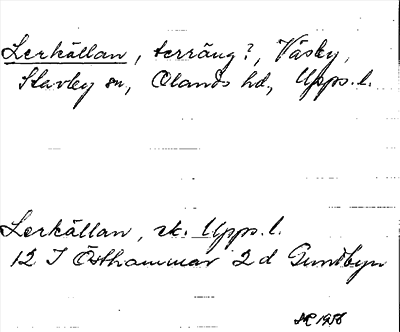 Lerkällan, terräng?, Väsby,
Stavby sn, Olands hd, Upps. l.
Lerkällan, ek. Upps. l.
12 I Östhammar 2 d Gundbyn
1956